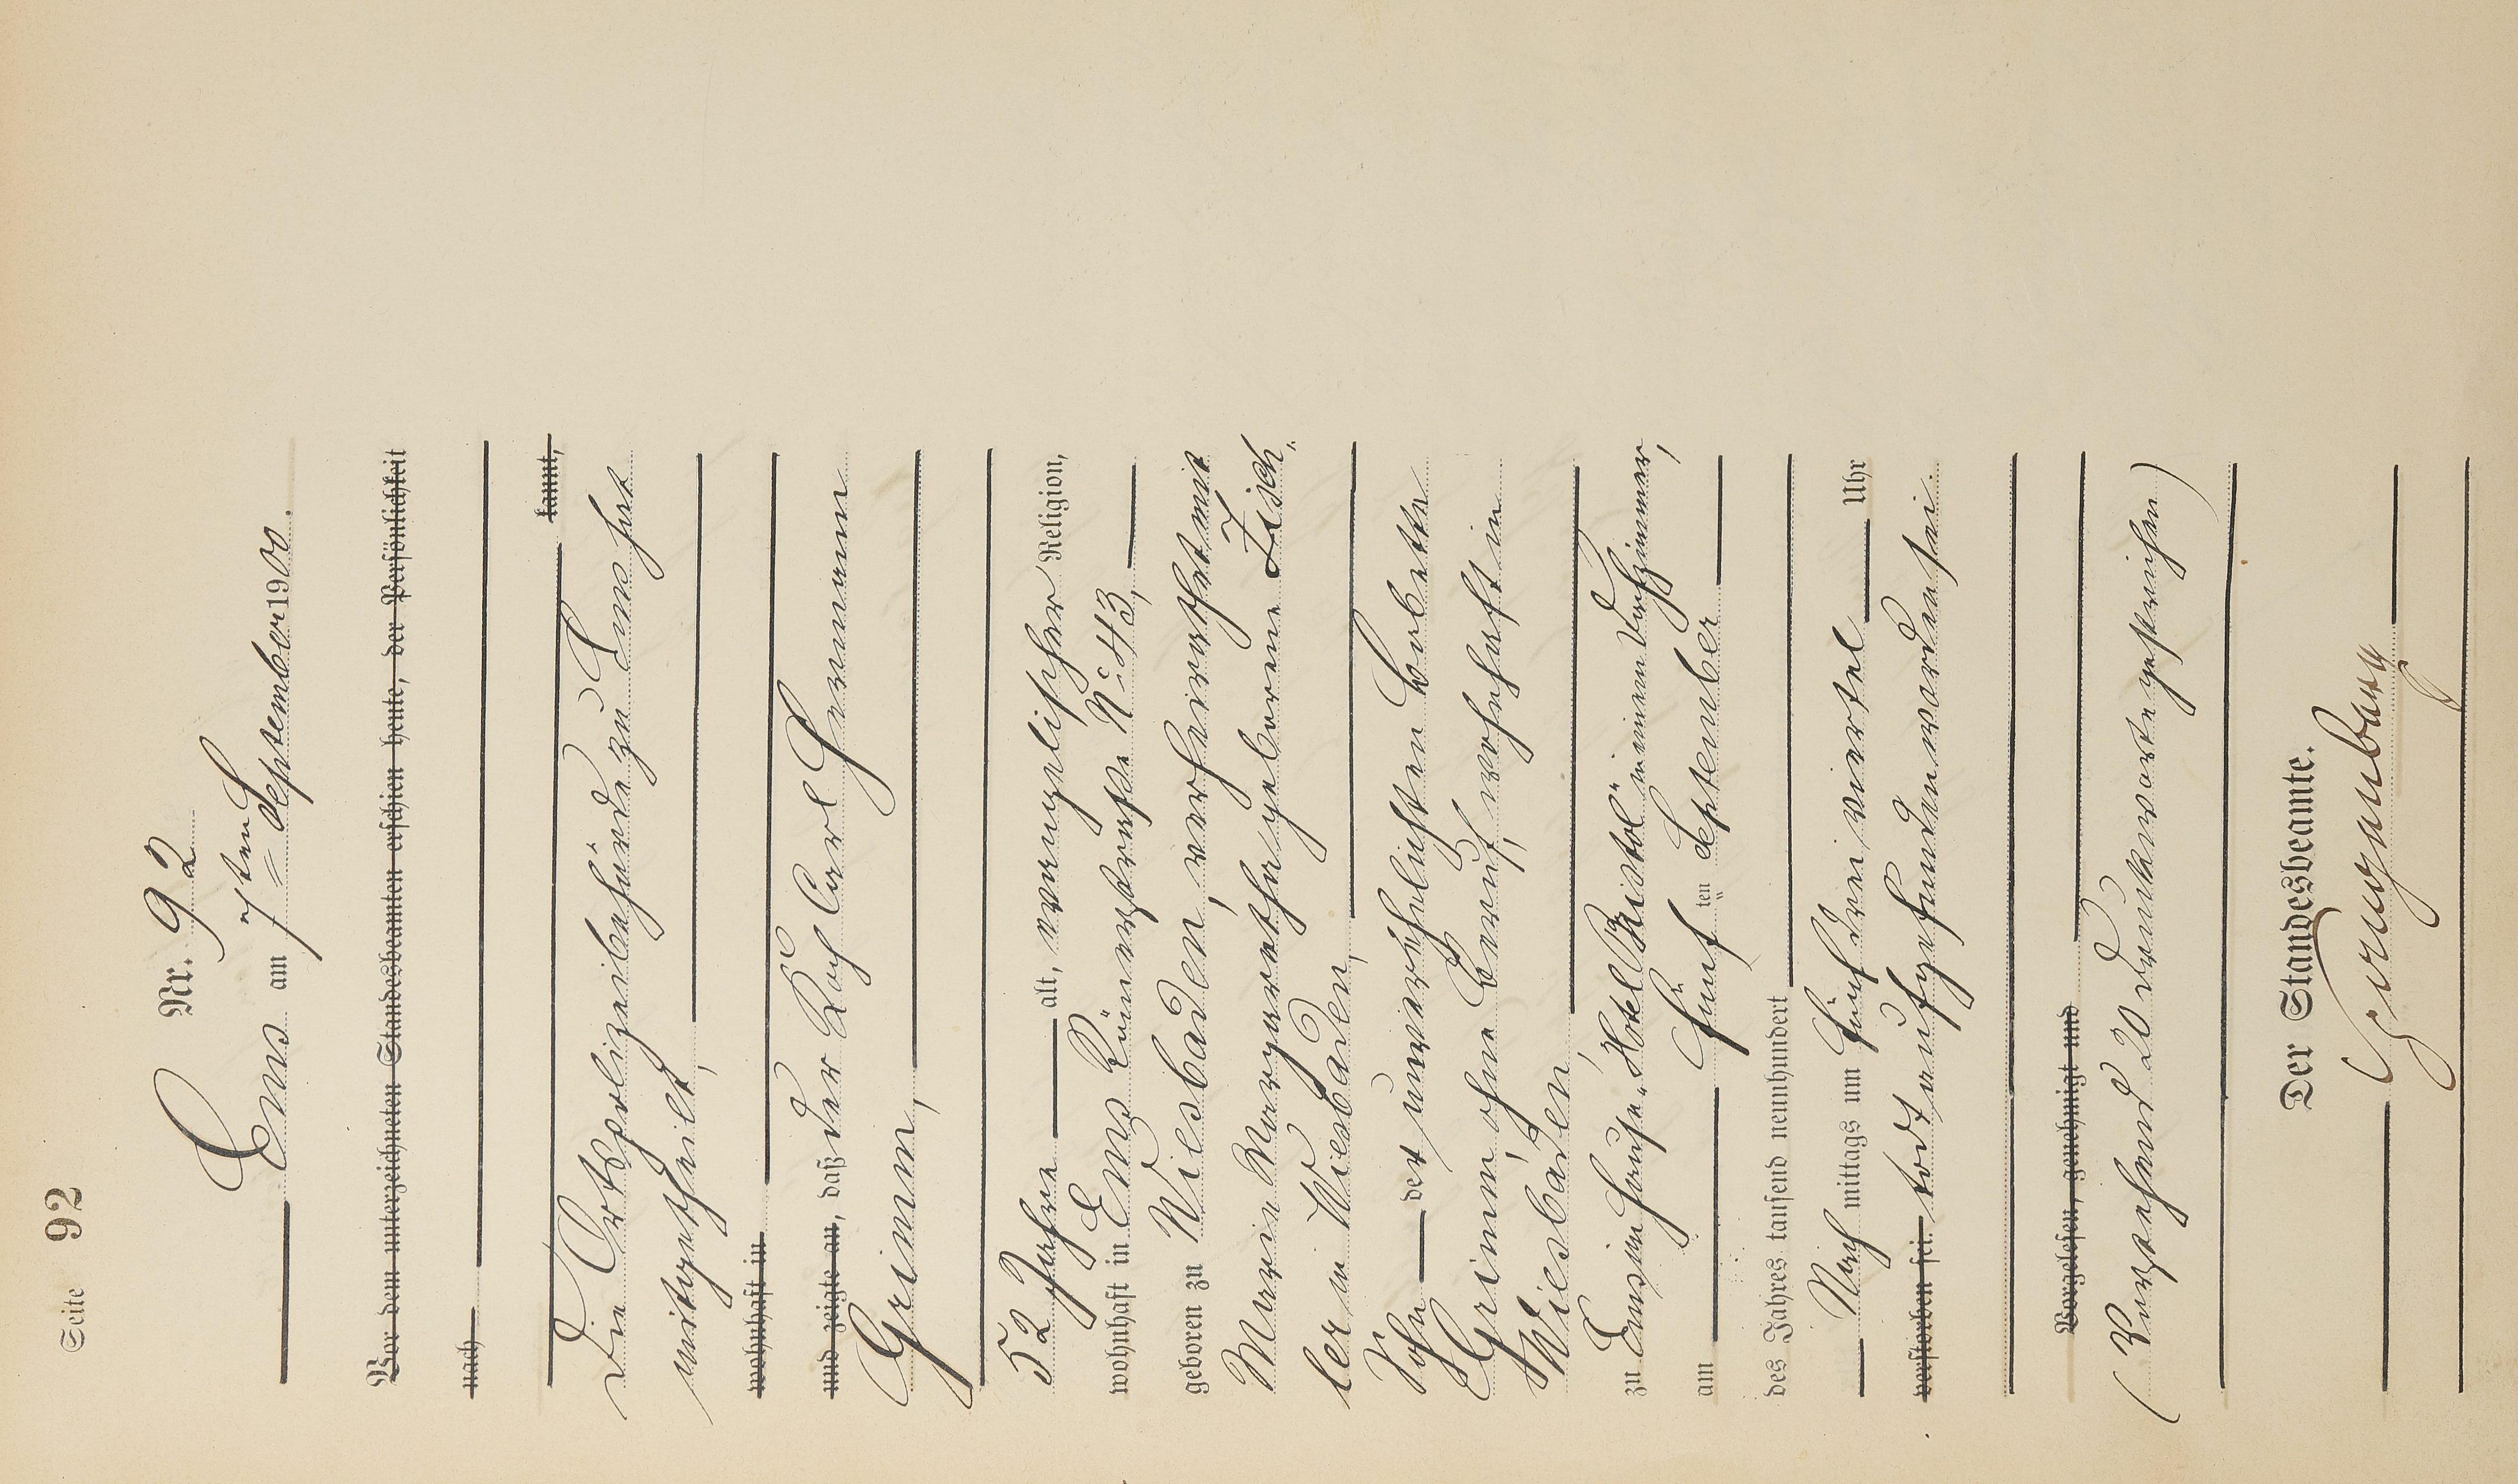 Seite 92
Nr. 92
Ems am 7ten September 1900.
Vor dem unterzeichneten Standesbeamten erschien heute, der Persönlichkeit
nach
kannt,
Die Ortspolizeibehörde zu Ems hat
mitgetheilt,
wohnhaft in
und zeigte an, daß der Koch Carl Hermann
Grimm,
52 Jahre alt, evangelischer Religion,
wohnhaft in Ems Römerstraße No 43,
geboren zu Wiesbaden, verheirathet mit
Marie Margarethe geborene Zisch,
ler in Wiesbaden,
Sohn der unverehelichten Babette
Grimm, ohne Beruf, wohnhaft in
Wiesbaden,
zu Ems im Hause „Hotel Bristol" in einem Dachzimmer,
am fünf ten September
des Jahres tausend neunhundert
Nach mittags um fünf drei viertel Uhr
verstorben sei. todt aufgefunden worden sei.
Vorgelesen, genehmigt und
(Vorstehend 20 Druckworte gestrichen)
Der Standesbeamte.